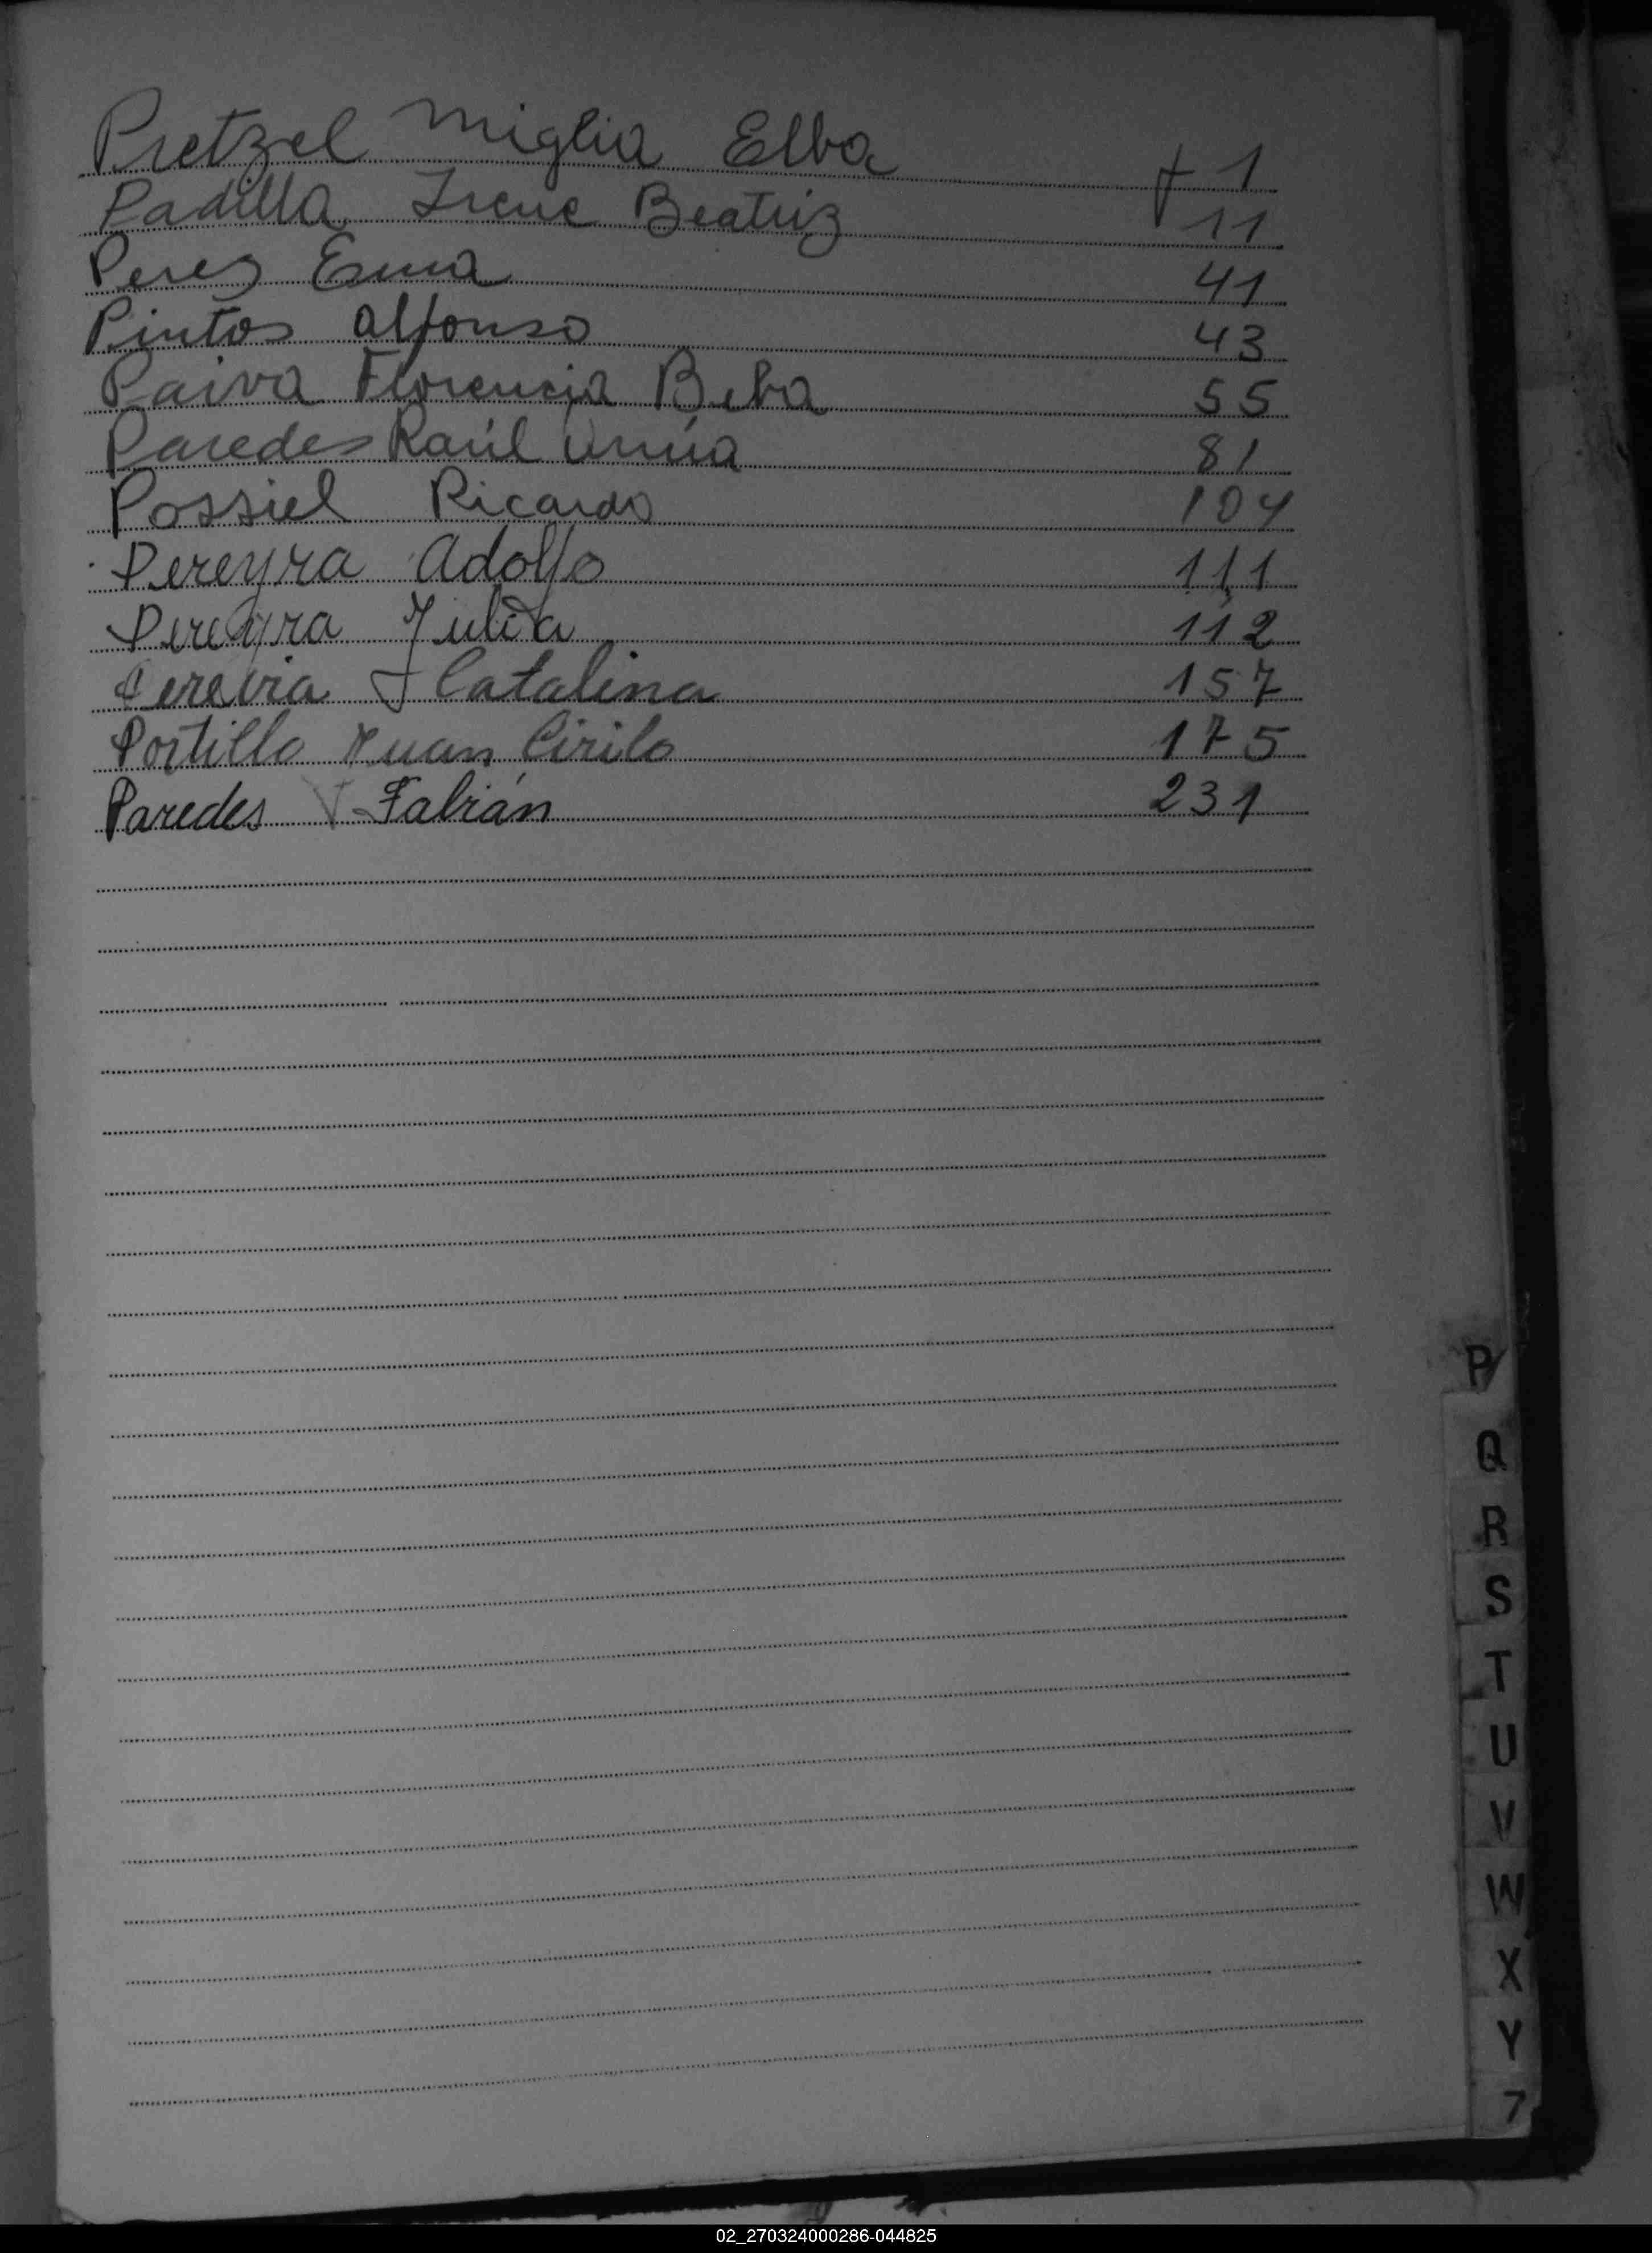 Pretzel Miglia Elba f 1
Padilla Irene Beatriz 11
Perez Ema 41
Pintos Alfonso 43
Paiva Florencia Beba 55
Paredes Raúl 81
Possiel Ricardo 104
Pereyra Adolfo 111
Pereyra Julia 112
Pereira J Catalina 157
Portillo Juan Cirilo 175
Paredes Fabián 231
P
Q
R
S
T
U
V
W
X
Y
02_270324000286-044825